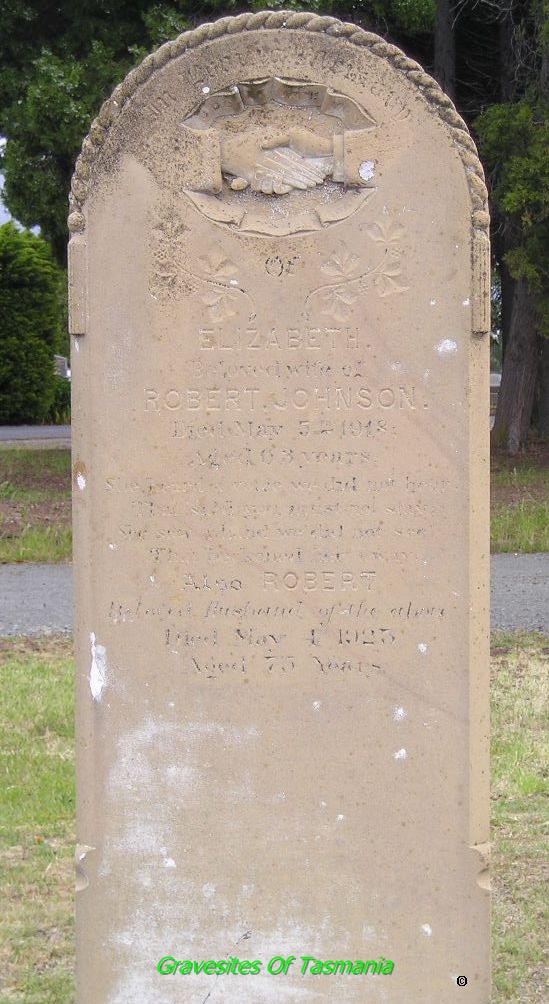 In Loving Memory
Of
ELIZABETH.
Beloved wife of
ROBERT. JOHNSON.
Died May 5th 1918.
Aged 63 years.
She heard a voice we did not hear
That said you must not stay,
She saw a hand we did not see
That beckoned her away.
Also ROBERT
Beloved Husband of the above
Died May 4 1923
Aged 75 Years.
Gravesites Of Tasmania
©